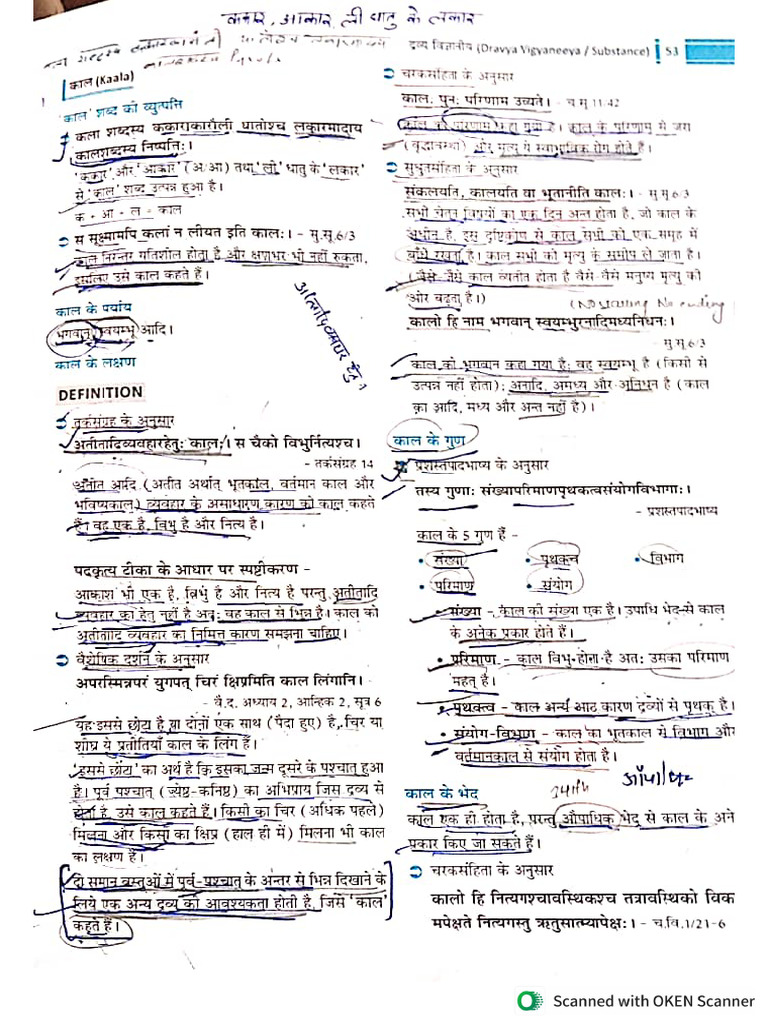 ककार, आकार, ली धातु के लकार
द्रव्य विज्ञानीय (Dravya Vigyaneeya / Substance) 53
काल (Kaala)
'काल' शब्द की व्युत्पत्ति
कला शब्दस्य ककाराकारौली धातोश्च लकारमादाय
कालशब्दस्य निष्पत्तिः।
'ककार' और 'आकार' (अ/आ) तथा 'ली' धातु के 'लकार'
से 'काल' शब्द उत्पन्न हुआ है।
क + आ + ल = काल
स सूक्ष्मामपि कलां न लीयत इति कालः। - सु.सू.6/3
काल निरन्तर गतिशील होता है और क्षणभर भी नहीं रुकता,
इसलिए उसे काल कहते हैं।
काल के पर्याय
भगवान्, स्वयम्भू आदि।
काल के लक्षण
DEFINITION
तर्कसंग्रह के अनुसार
अतीतादिव्यवहारहेतुः कालः। स चैको विभुर्नित्यश्च।
- तर्कसंग्रह 14
अतीत आदि (अतीत अर्थात् भूतकाल, वर्तमान काल और
भविष्यकाल) व्यवहार के असाधारण कारण को काल कहते
हैं। वह एक है, विभु है और नित्य है।
पदकृत्य टीका के आधार पर स्पष्टीकरण -
आकाश भी एक है, विभु है और नित्य है परन्तु अतीतादि
व्यवहार का हेतु नहीं है अतः वह काल से भिन्न है। काल को
अतीतादि व्यवहार का निमित्त कारण समझना चाहिए।
वैशेषिक दर्शन के अनुसार
अपरस्मिन्नपरं युगपत् चिरं क्षिप्रमिति काल लिंगानि।
- वै.द. अध्याय 2, आन्हिक 2, सूत्र 6
यह इससे छोटा है या दोनों एक साथ (पैदा हुए) है, चिर या
शीघ्र ये प्रतीतियाँ काल के लिंग हैं।
'इससे छोटा' का अर्थ है कि इसका जन्म दूसरे के पश्चात् हुआ
है। पूर्व पश्चात् (ज्येष्ठ-कनिष्ठ) का अभिप्राय जिस द्रव्य से
होता है, उसे काल कहते हैं। किसी का चिर (अधिक पहले)
मिलना और किसी का क्षिप्र (हाल ही में) मिलना भी काल
का लक्षण है।
दो समान वस्तुओं में पूर्व-पश्चात् के अन्तर से भिन्न दिखाने के
लिये एक अन्य द्रव्य की आवश्यकता होती है, जिसे 'काल'
कहते हैं।
चरकसंहिता के अनुसार
कालः पुनः परिणाम उच्यते। - च.सू.11/42
काल को परिणाम कहा गया है। काल के परिणाम से जरा
(वृद्धावस्था) और मृत्यु ये स्वाभाविक रोग होते हैं।
सुश्रुतसंहिता के अनुसार
संकलयति, कालयति वा भूतानीति कालः। - सु.सू.6/3
सभी चेतन विषयों का एक दिन अन्त होता है, जो काल के
अधीन है, इस दृष्टिकोण से काल सभी को एक समूह में
बाँधे रखता है। काल सभी को मृत्यु के समीप ले जाता है।
(जैसे-जैसे काल व्यतीत होता है वैसे-वैसे मनुष्य मृत्यु की
ओर बढ़ता है।)
(No starting No ending)
कालो हि नाम भगवान् स्वयम्भुरनादिमध्यनिधनः।
- सु.सू.6/3
काल को भगवान कहा गया है; वह स्वयम्भू है (किसी से
उत्पन्न नहीं होता); अनादि, अमध्य और अनिधन है (काल
का आदि, मध्य और अन्त नहीं है)।
काल के गुण
प्रशस्तपादभाष्य के अनुसार
तस्य गुणाः संख्यापरिमाणपृथकत्वसंयोगविभागाः।
- प्रशस्तपादभाष्य
काल के 5 गुण हैं -
• संख्या • पृथकत्व • विभाग
• परिमाण • संयोग
• संख्या - काल की संख्या एक है। उपाधि भेद से काल
के अनेक प्रकार होते हैं।
• परिमाण - काल विभु होता है अतः उसका परिमाण
महत् है।
• पृथकत्व - काल अन्य आठ कारण द्रव्यों से पृथक् है।
• संयोग-विभाग - काल का भूतकाल से विभाग और
वर्तमानकाल से संयोग होता है।
काल के भेद
काल एक ही होता है, परन्तु औपाधिक भेद से काल के अने
प्रकार किए जा सकते हैं।
चरकसंहिता के अनुसार
कालो हि नित्यगश्चावस्थिकश्च तत्रावस्थिको विक
मपेक्षते नित्यगस्तु ऋतुसात्म्यापेक्षः। - च.वि.1/21-6
Scanned with OKEN Scanner